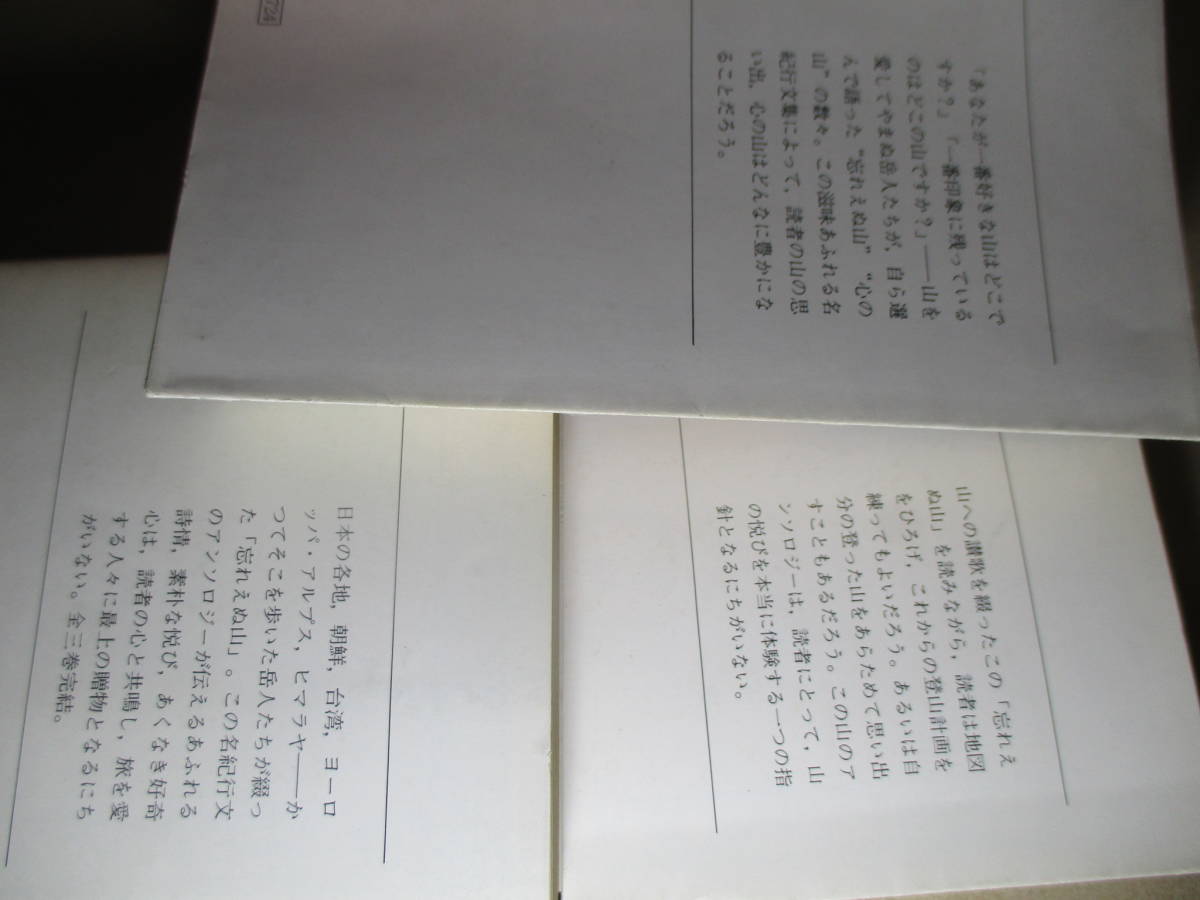 724
「あなたが一番好きな山はどこで
すか?」「一番印象に残っている
のはどこの山ですか?」――山を
愛してやまぬ岳人たちが，自ら選
んで語った“忘れえぬ山”“心の
山”の数々。この滋味あふれる名
紀行文集によって，読者の山の思
い出，心の山はどんなに豊かにな
ることだろう。
山への讃歌を綴ったこの「忘れえ
ぬ山」を読みながら，読者は地図
をひろげ，これからの登山計画を
練ってもよいだろう。あるいは自
分の登った山をあらためて思い出
すこともあるだろう。この山のア
ンソロジーは，読者にとって，山
の悦びを本当に体験する一つの指
針となるにちがいない。
日本の各地，朝鮮，台湾，ヨーロ
ッパ・アルプス，ヒマラヤ――か
つてそこを歩いた岳人たちが綴っ
た「忘れえぬ山」。この名紀行文
のアンソロジーが伝えるあふれる
詩情，素朴な悦び，あくなき好奇
心は，読者の心と共鳴し，旅を愛
する人々に最上の贈物となるにち
がいない。全三巻完結。